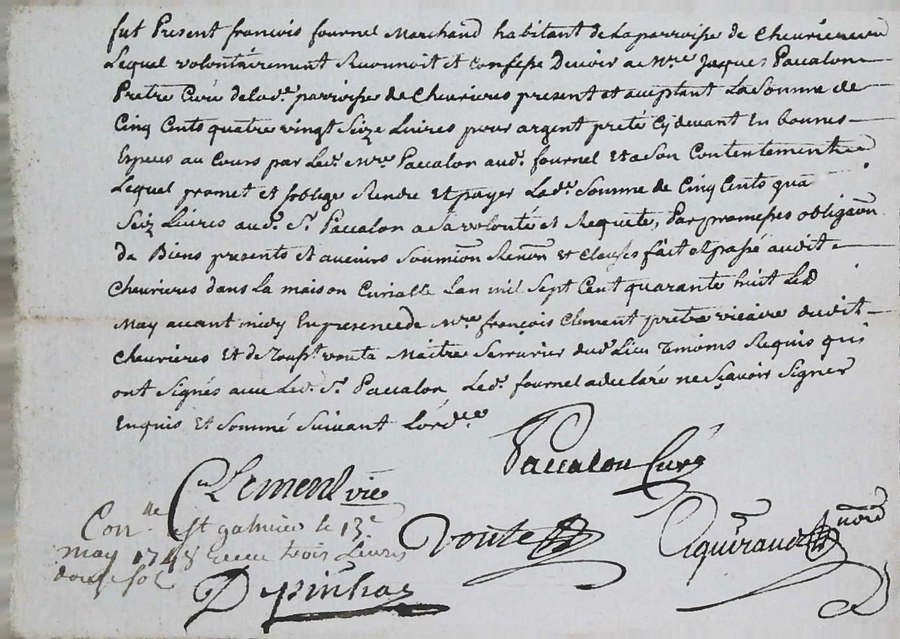 fut Present françois fournel Marchand habitant de La parroisse de Cheurieres
Lequel volontairement Reconnoit et Confesse Devoir a Mre Jaques Paccalon
Pretre Curé de lade. parroisse de Cheurieres present et aceptant La Somme de
Cinq Cents quatre vingt Seize Livres pour argent preté Cy devant En bonnes
Especes au Cours par Led. Mre Paccalon aud. fournel Et a Son Contentement
Lequel promet et soblige Rendre Et payer Lade. Somme de Cinq Cents
Seiz Livres aud. Sr. Paccalon a Sa volonté et Requete, Par promesses obligaon
De Biens presents et avenirs Soumion Renon Et Clauses fait et passé audit
Cheurieres dans La maison Curialle Lan mil Sept Cent quarante huit Le
May avant midy En presence de Mre françois Clement pretre vicaire dudit
Cheurieres Et de voute Maitre Serrurier dud. Lieu Temoins Requis qui
ont Signés avec Led. Sr. Paccalon Led. fournel a declaré ne Sçavoir Signer
Enquis Et Sommé Suivant Lordce
Paccalon Curé
Clement vic
Conlle a st galmier le 13e
may 1748 Receu trois Livres
douze sols
Voute
Depinhac